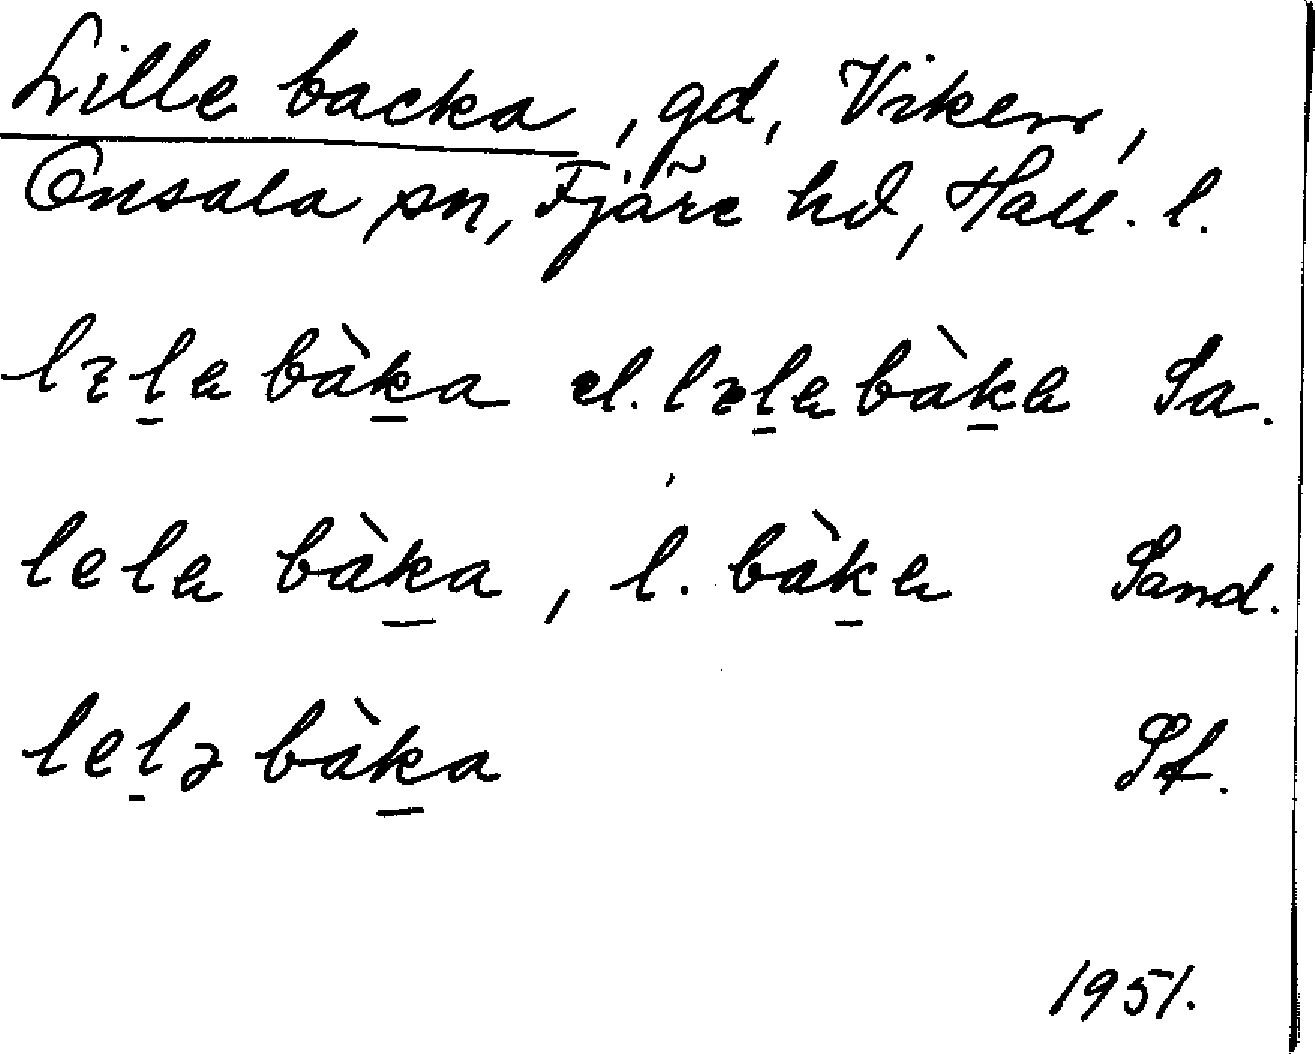 Lille backa, gd, Viken,
Onsala sn, Fjäre hd, Hall. l.
lɿl̲a bàk̲a el. lɿl̲a bàk̲a Sa.
lela bàk̲a, l. bàk̲a Sand.
lel̲ə bàk̲a Sf.
1951.